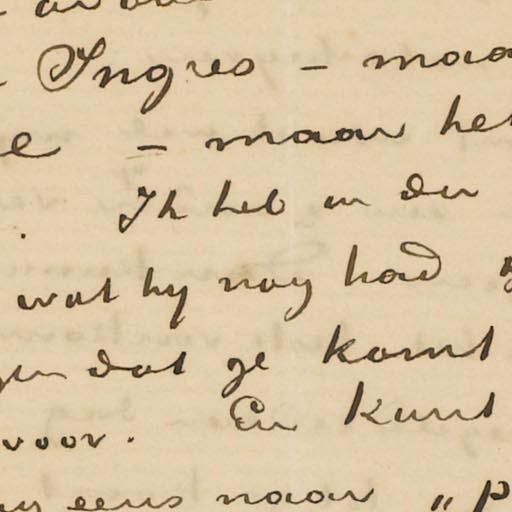 Ingres – maa
– maar he
Ik heb in den
wat hy nog had
dat ge komt
voor. En kunt
eens naar „ p